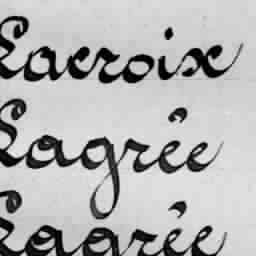 Lacroix
Lagrée
Lagrée